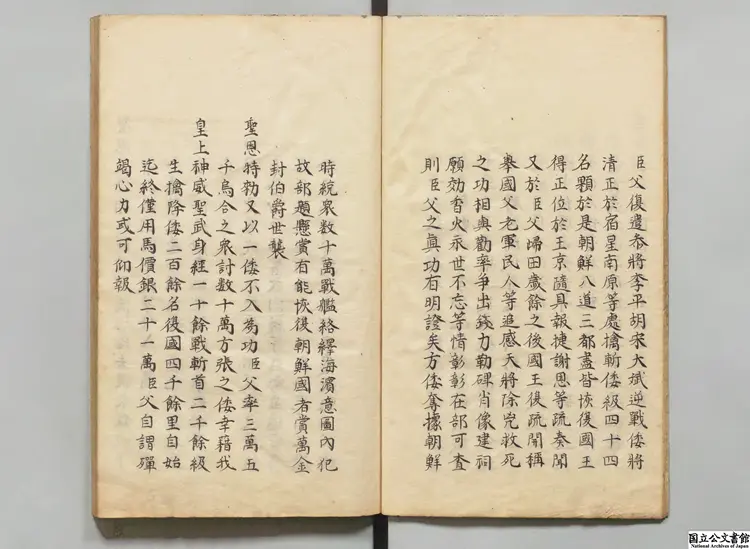 臣父復遣叅將李平胡宋大斌逆戰倭將
清正於宿星南原等處擒斬倭級四十四
名顆於是朝鮮八道三都盡皆恢復國王
得正位於王京隨具報捷謝恩等疏奏聞
又於臣父歸田歲餘之後國王復疏開稱
舉國父老軍民人等追感天將除兇救死
之功相與勸率爭出錢力勒碑肖像建祠
願効香火永世不忘等情彰彰在部可查
則臣父之眞功有明證矣方倭奪據朝鮮
時統衆數十萬戰艦絡繹海濱意圖內犯
故部題懸賞有能恢復朝鮮國者賞萬金
封伯爵世襲
聖恩特勑又以一倭不入為功臣父率三萬五
千烏合之衆討數十萬方張之倭幸藉我
皇上神威聖武身經一十餘戰斬首二千餘級
生擒降倭二百餘名復國四千餘里自始
迄終僅用馬價銀二十一萬臣父自謂殫
竭心力或可仰報
国立公文書館
National Archives of Japan